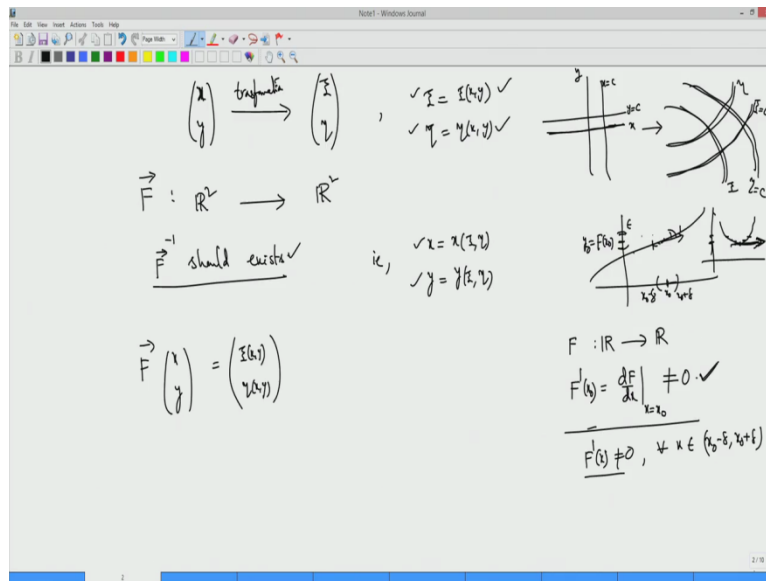 Note1 - Windows Journal
File Edit View Insert Actions Tools Help
Page Width
B I
(x y) trasformation → (ξ η) ,
✓ ξ = ξ(x,y) ✓
✓ η = η(x,y) ✓
y x=c
y=c
x →
η ξ=c
ξ η=c
F⃗ : ℝ² → ℝ²
F⃗⁻¹ should exists ✓ ie,
✓ x = x(ξ,η)
✓ y = y(ξ,η)
y₀=F(x₀) ε
x₀-δ x₀ x₀+δ
F⃗ (x y) = (ξ(x,y) η(x,y))
F : ℝ → ℝ
F'(x₀) = dF/dx |x=x₀ ≠0. ✓
F'(x) ≠0 , ∀ x ∈ (x₀-δ, x₀+δ)
2
2/10